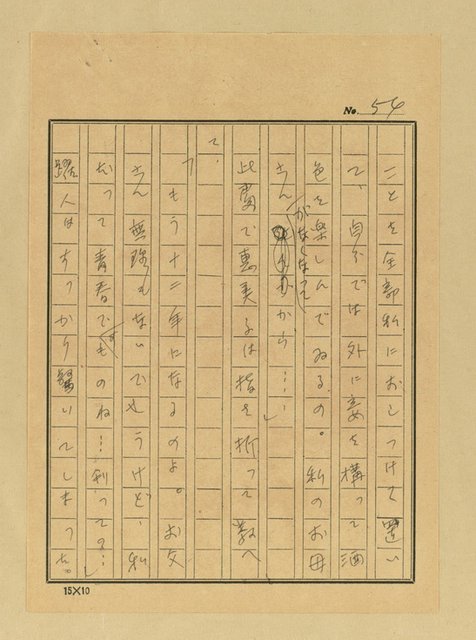 No. 54
ことを全部私におしつけて置い
て、自分では外に妾を構って酒
色を楽しんでゐるの。私のお母
さんがなくなってから……」
此處で惠美子は指を折って数へ
て、
「もう十二年になるのよ。お父
さん無理もないでせうけど、私
だって青春てものね…判っての…」
人はすっかり驚いてしまった。
15×10